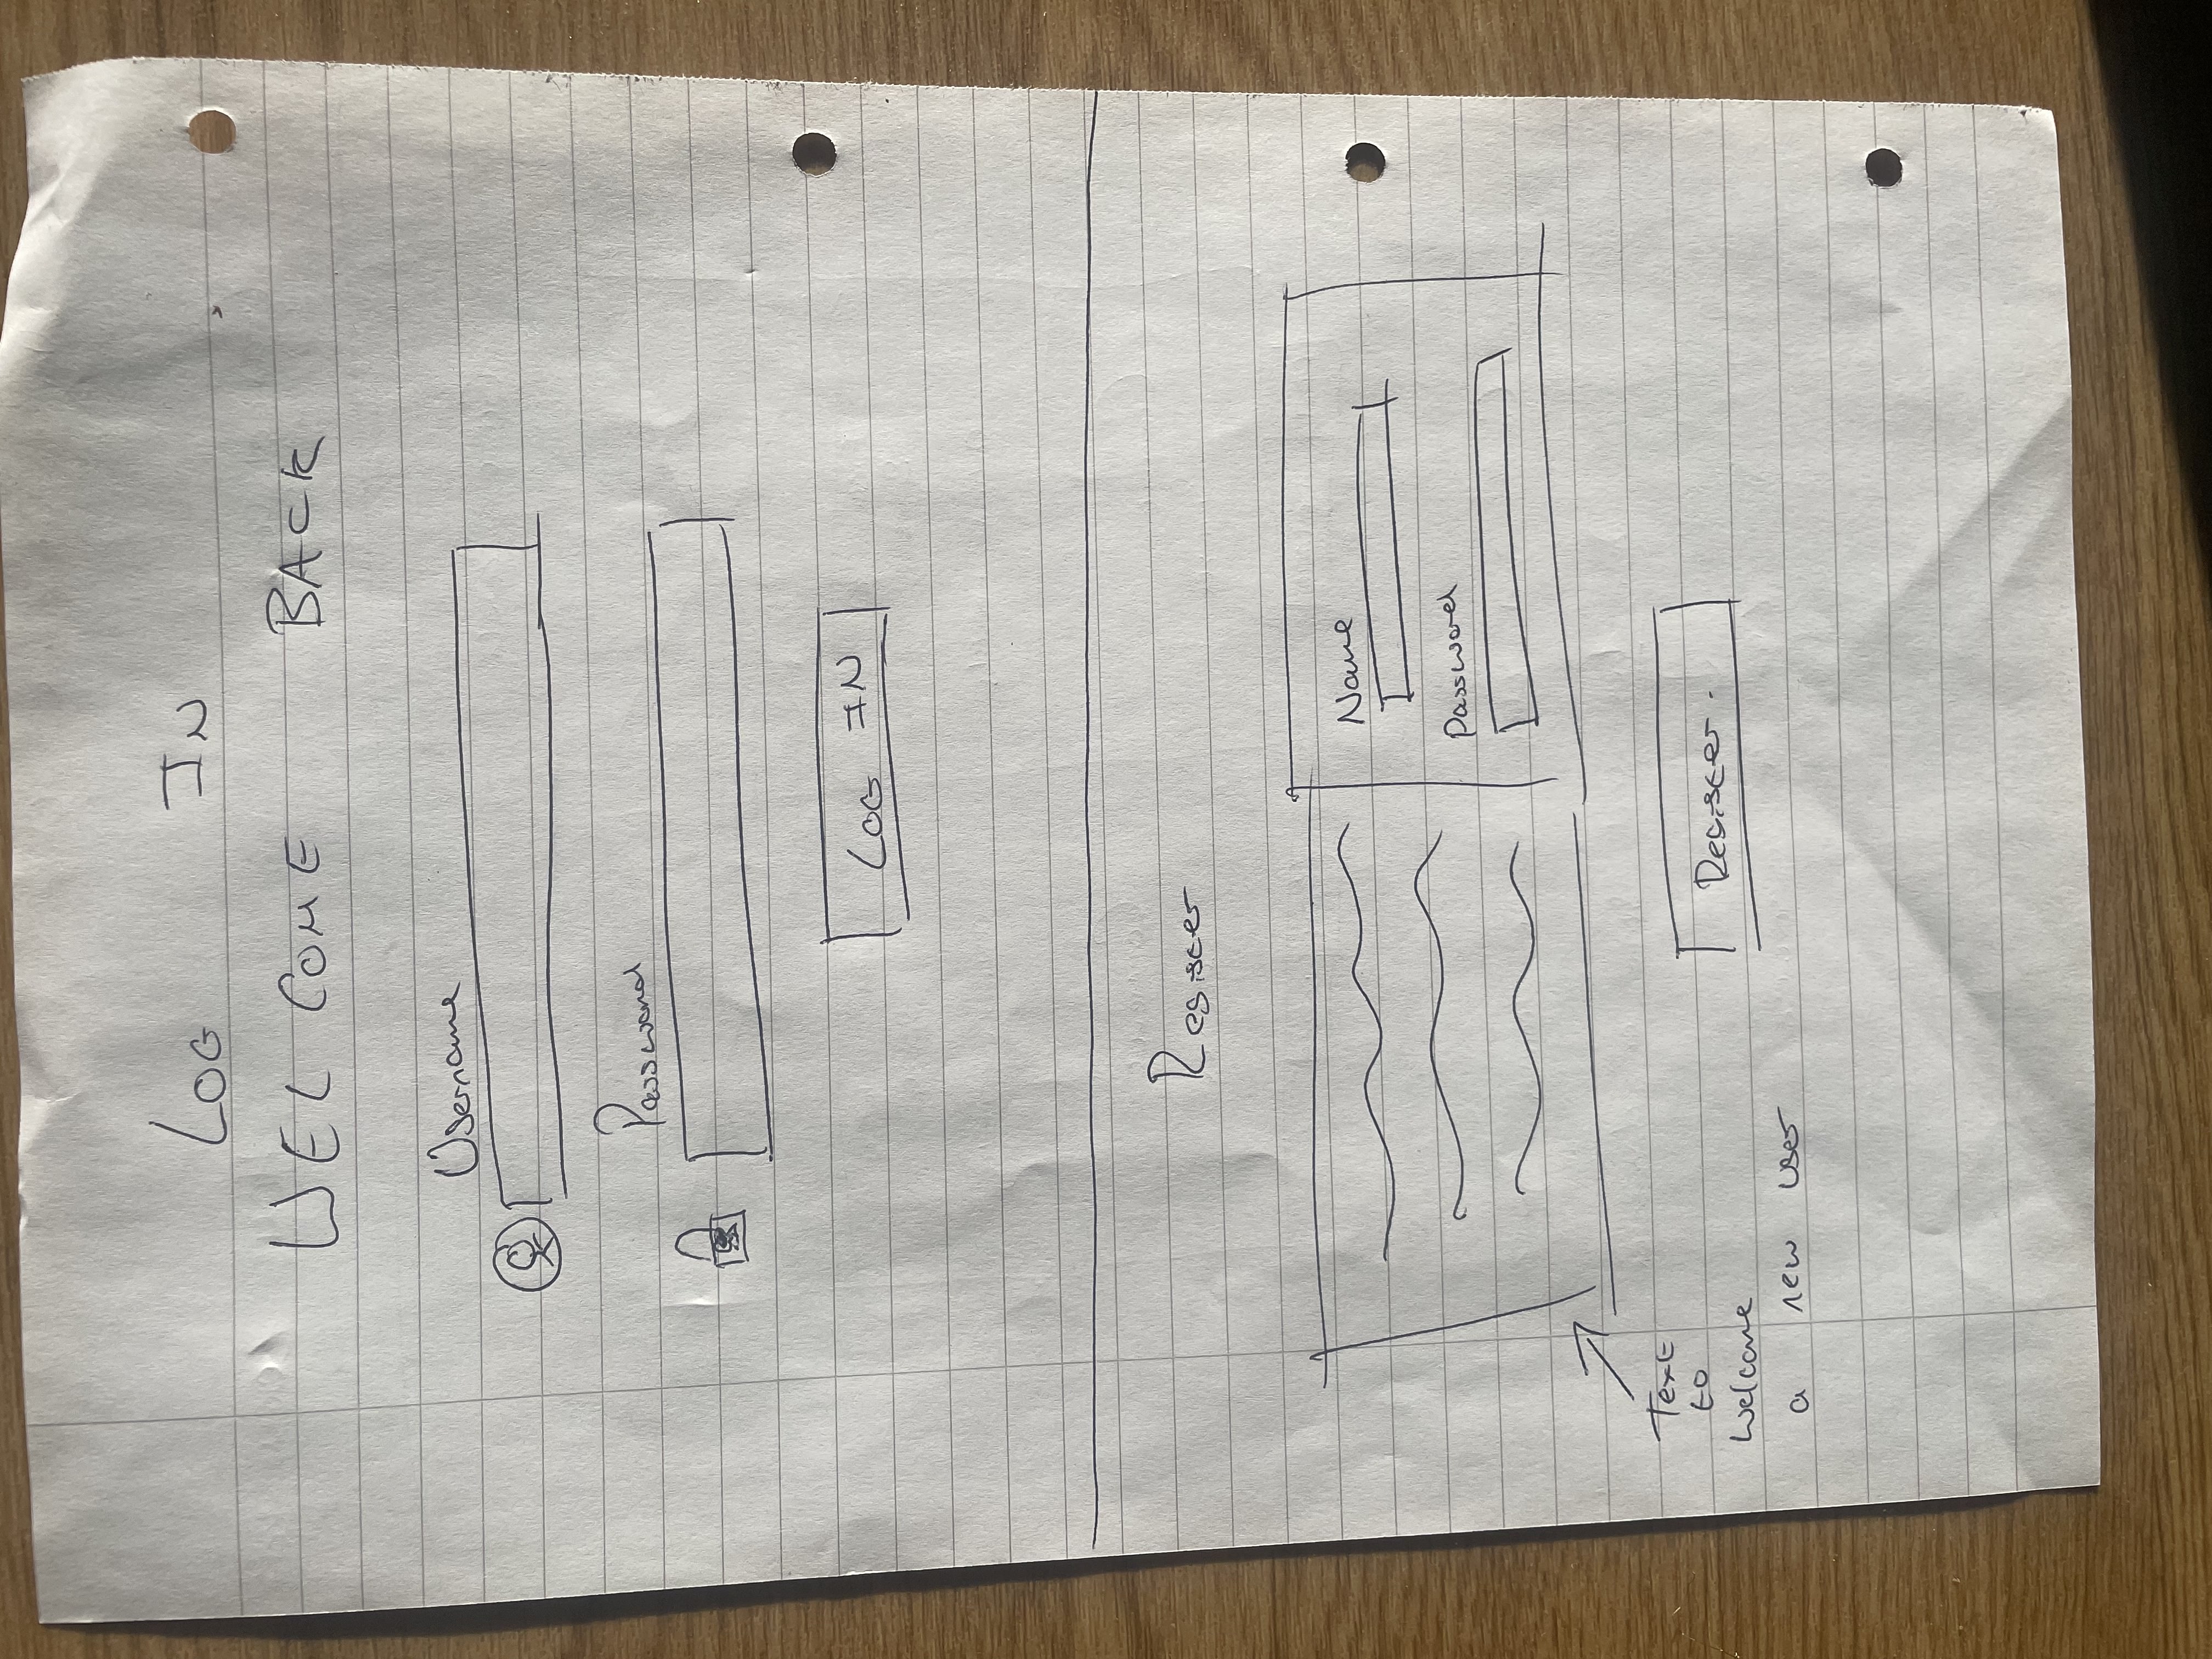 LOG IN
WELCOME BACK
Username
Password
LOG IN
Register
Name
Password
Text
to
Welcome
a new user
Register.